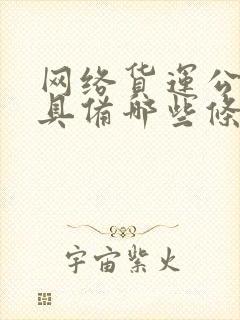 网络货運公
具備哪些條
宇宙紫火